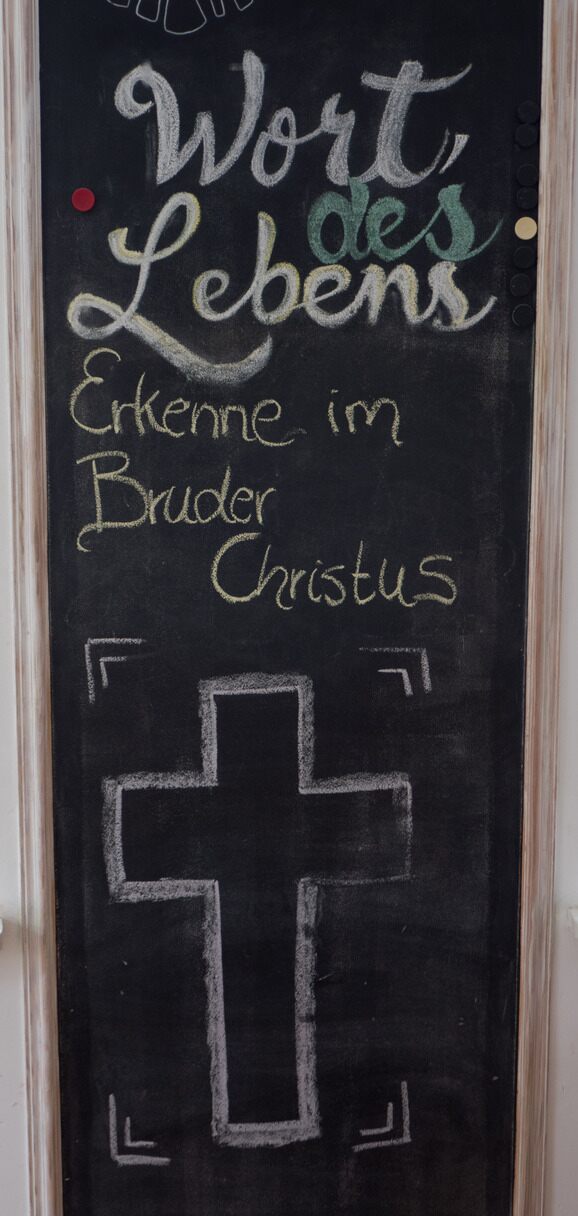 Wort,
des
Lebens
Erkenne im
Bruder
Christus